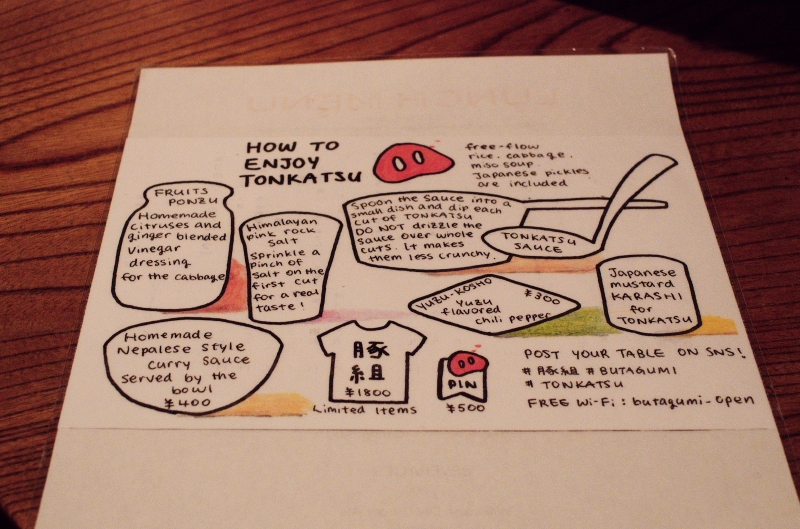 HOW TO
ENJOY
TONKATSU
free-flow
rice. cabbage.
miso soup.
Japanese pickles
are included
FRUITS
PONZU
Homemade
Citruses and
ginger blended
Vinegar
dressing
for the cabbage
Himalayan
pink rock
salt
Sprinkle a
pinch of
salt on the
first cut
for a real
taste!
Spoon the sauce into a
small dish and dip each
cut of TONKATSU
DO NOT drizzle the
sauce over whole
cuts. It makes
them less crunchy.
TONKATSU
SAUCE
YUZU-KOSHO
¥300
Yuzu
flavored
chili pepper
Japanese
mustard
KARASHI
for
TONKATSU
Homemade
Nepalese style
curry sauce
served by the
bowl
¥400
豚
組
¥1800
Limited Items
PIN
¥500
POST YOUR TABLE ON SNS!
#豚組 #BUTAGUMI
# TONKATSU
FREE Wi-Fi : butagumi-open